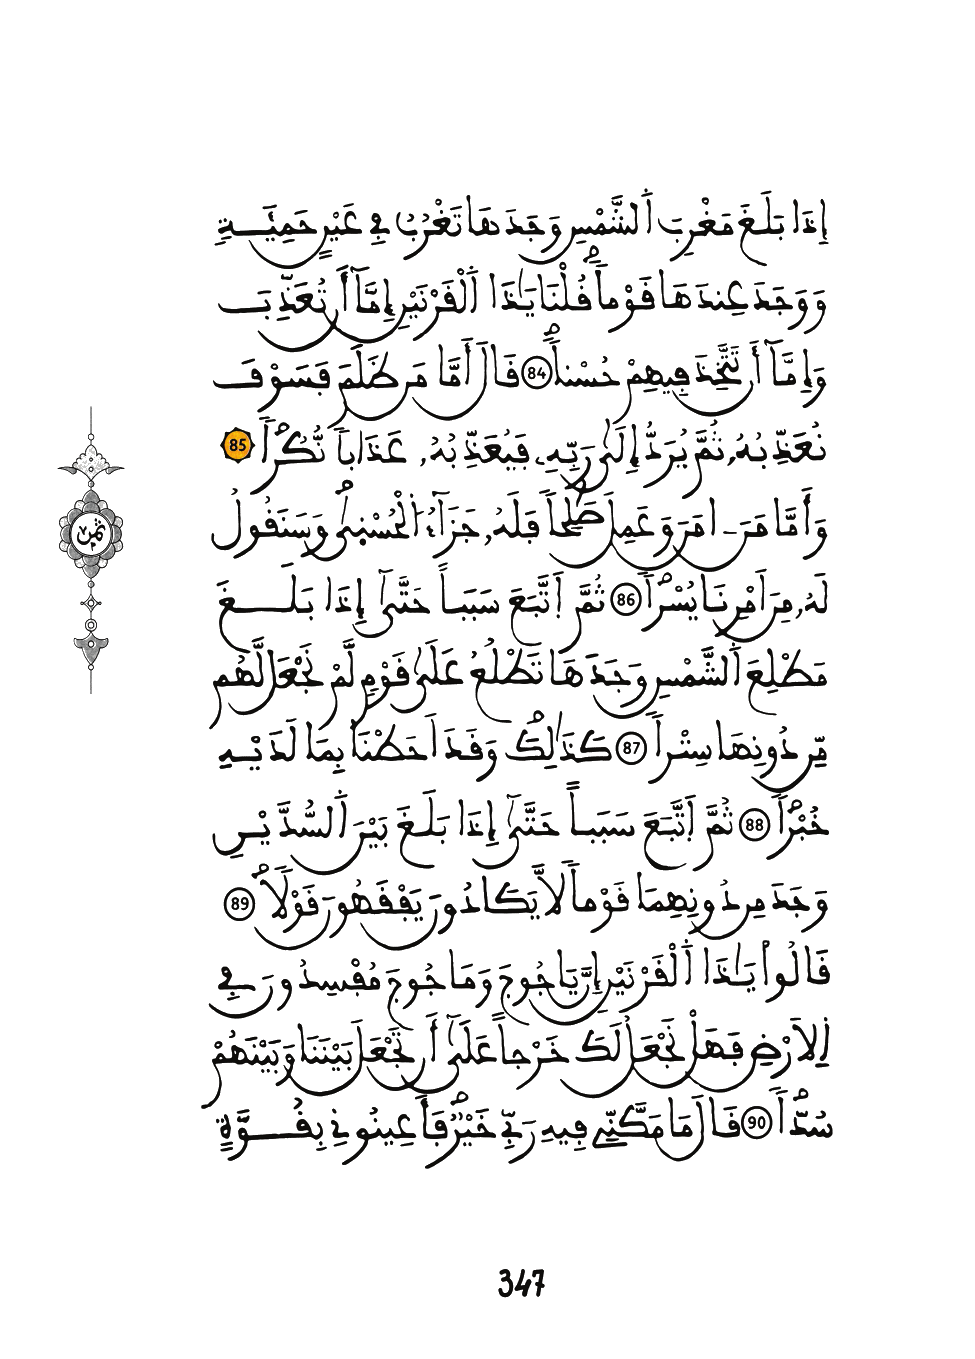 إِذَا بَلَغَ مَغْرِبَ اَ۬لشَّمْسِ وَجَدَهَا تَغْرُبُ فِے عَيْنٍ حَمِئَةٖ
وَوَجَدَ عِندَهَا قَوْماٗۖ قُلْنَا يَٰذَا اَ۬لْقَرْنَيْنِ إِمَّآ أَن تُعَذِّبَ
وَإِمَّآ أَن تَتَّخِذَ فِيهِمْ حُسْناٗۖ 84 قَالَ أَمَّا مَن ظَلَمَ فَسَوْفَ
نُعَذِّبُهُۥ ثُمَّ يُرَدُّ إِلَىٰ رَبِّهِۦ فَيُعَذِّبُهُۥ عَذَاباٗ نُّكُراٗۖ 85
وَأَمَّا مَنَ اٰمَنَ وَعَمِلَ صَٰلِحاٗ فَلَهُۥ جَزَآءُ اُ۬لْحُسْنۭىٰۖ وَسَنَقُولُ
لَهُۥ مِنَ اَمْرِنَا يُسْراٗۖ 86 ثُمَّ اَ۪تَّبَعَ سَبَباً حَتَّىٰٓ إِذَا بَلَغَ
مَطْلِعَ اَ۬لشَّمْسِ وَجَدَهَا تَطْلُعُ عَلَىٰ قَوْمٖ لَّمْ نَجْعَل لَّهُم
مِّن دُونِهَا سِتْراٗ 87 كَذَٰلِكَۖ وَقَدَ اَحَطْنَا بِمَا لَدَيْهِ
خُبْراٗۖ 88 ثُمَّ اَ۪تَّبَعَ سَبَباً حَتَّىٰٓ إِذَا بَلَغَ بَيْنَ اَ۬لسُّدَّيْنِ
وَجَدَ مِن دُونِهِمَا قَوْماٗ لَّا يَكَادُونَ يَفْقَهُونَ قَوْلاٗۖ 89
قَالُواْ يَٰذَا اَ۬لْقَرْنَيْنِ إِنَّ يَاجُوجَ وَمَاجُوجَ مُفْسِدُونَ فِے
اِ۬لَارْضِ فَهَلْ نَجْعَلُ لَكَ خَرْجاً عَلَىٰٓ أَن تَجْعَلَ بَيْنَنَا وَبَيْنَهُمْ
سُدّاٗۖ 90 قَالَ مَا مَكَّنِّے فِيهِ رَبِّے خَيْرٞۖ فَأَعِينُونِے بِقُوَّةٍ
ثمن
347